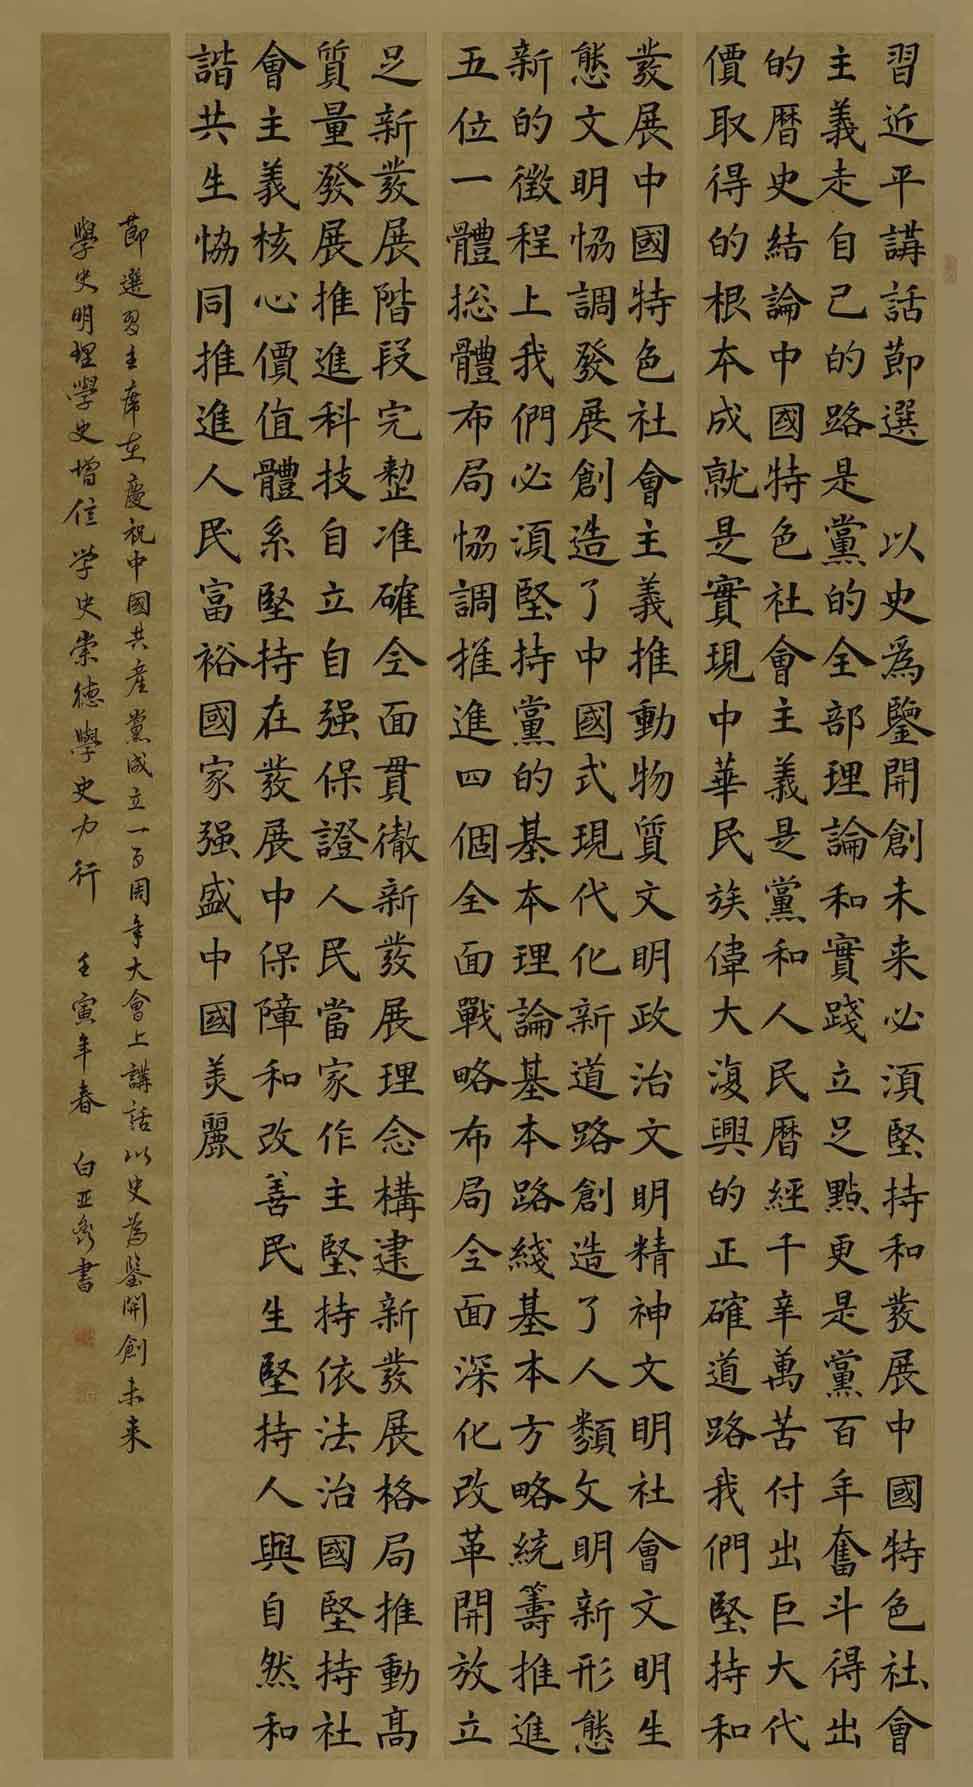 習近平講話節選　以史爲鑒開創未来必須堅持和發展中國特色社會
主義走自己的路是黨的全部理論和實踐立足點更是黨百年奮斗得出
的曆史結論中國特色社會主義是黨和人民曆經千辛萬苦付出巨大代
價取得的根本成就是實現中華民族偉大復興的正確道路我們堅持和
發展中國特色社會主義推動物質文明政治文明精神文明社會文明生
態文明恊調發展創造了中國式現代化新道路創造了人類文明新形態
新的徵程上我們必須堅持黨的基本理論基本路綫基本方略統籌推進
五位一體総體布局恊調推進四個全面戰略布局全面深化改革開放立
足新發展階段完整准確全面貫徹新發展理念構建新發展格局推動高
質量發展推進科技自立自强保證人民當家作主堅持依法治國堅持社
會主義核心價值體系堅持在發展中保障和改善民生堅持人與自然和
諧共生恊同推進人民富裕國家强盛中國美麗
節選習主席在慶祝中國共産黨成立一百周年大會上講話以史為鑒開創未来
學史明理學史增信学史崇德學史力行　壬寅年春　白亚書